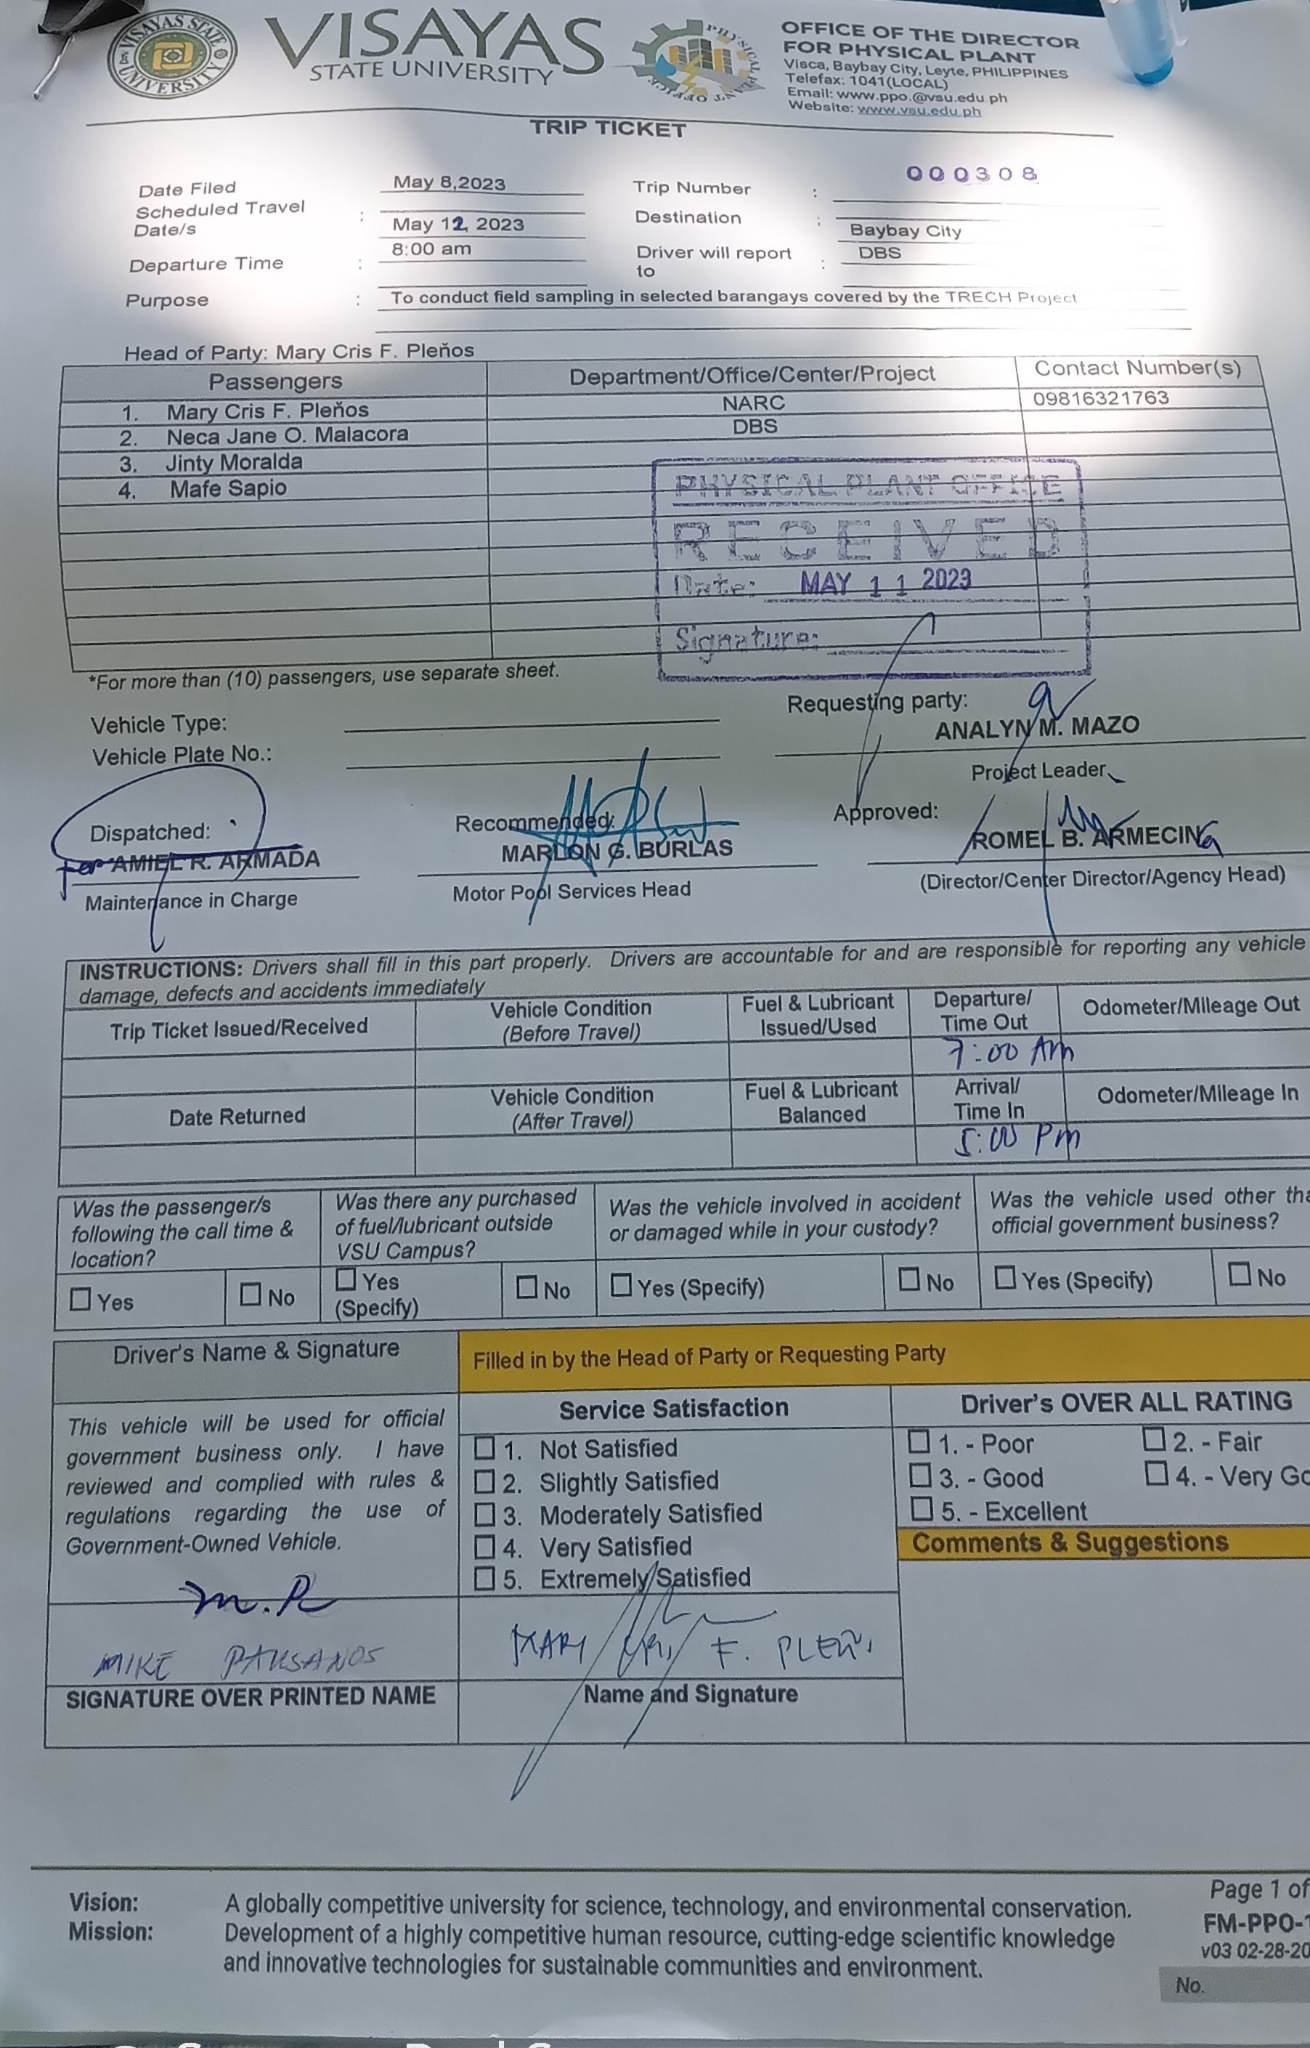 VISAYAS STATE UNIVERSITY
VISAYAS
STATE UNIVERSITY
PHYSICAL PLANT OFFICE
OFFICE OF THE DIRECTOR
FOR PHYSICAL PLANT
Visca, Baybay City, Leyte, PHILIPPINES
Telefax: 1041(LOCAL)
Email: www.ppo.@vsu.edu ph
Website: www.vsu.edu.ph
TRIP TICKET
Date Filed May 8,2023 Trip Number : 000308
Scheduled Travel Date/s : May 12, 2023 Destination : Baybay City
Departure Time : 8:00 am Driver will report to : DBS
Purpose : To conduct field sampling in selected barangays covered by the TRECH Project
Head of Party: Mary Cris F. Pleños
Passengers Department/Office/Center/Project Contact Number(s)
1. Mary Cris F. Pleños NARC 09816321763
2. Neca Jane O. Malacora DBS
3. Jinty Moralda
4. Mafe Sapio
PHYSICAL PLANT OFFICE
RECEIVED
Date: MAY 11 2023
Signature:
*For more than (10) passengers, use separate sheet.
Vehicle Type:
Vehicle Plate No.:
Requesting party:
ANALYN M. MAZO
Project Leader
Dispatched:
For AMIEL R. ARMADA
Maintenance in Charge
Recommended:
MARLON G. BURLAS
Motor Pool Services Head
Approved:
ROMEL B. ARMECIN
(Director/Center Director/Agency Head)
INSTRUCTIONS: Drivers shall fill in this part properly. Drivers are accountable for and are responsible for reporting any vehicle
damage, defects and accidents immediately
Trip Ticket Issued/Received Vehicle Condition (Before Travel) Fuel & Lubricant Issued/Used Departure/ Time Out Odometer/Mileage Out
7:00 Am
Date Returned Vehicle Condition (After Travel) Fuel & Lubricant Balanced Arrival/ Time In Odometer/Mileage In
5:00 Pm
Was the passenger/s
following the call time &
location?
Yes No
Was there any purchased
of fuel/lubricant outside
VSU Campus?
Yes (Specify) No
Was the vehicle involved in accident
or damaged while in your custody?
Yes (Specify) No
Was the vehicle used other
official government business?
Yes (Specify) No
Driver's Name & Signature
This vehicle will be used for official
government business only. I have
reviewed and complied with rules &
regulations regarding the use of
Government-Owned Vehicle.
MIKE
SIGNATURE OVER PRINTED NAME
Filled in by the Head of Party or Requesting Party
Service Satisfaction
1. Not Satisfied
2. Slightly Satisfied
3. Moderately Satisfied
4. Very Satisfied
5. Extremely Satisfied
MARY CRIS F.
Name and Signature
Driver's OVER ALL RATING
1. - Poor 2. - Fair
3. - Good 4. - Very
5. - Excellent
Comments & Suggestions
Vision: A globally competitive university for science, technology, and environmental conservation.
Mission: Development of a highly competitive human resource, cutting-edge scientific knowledge
and innovative technologies for sustainable communities and environment.
Page 1 of
FM-PPO-
v03 02-28-20
No.